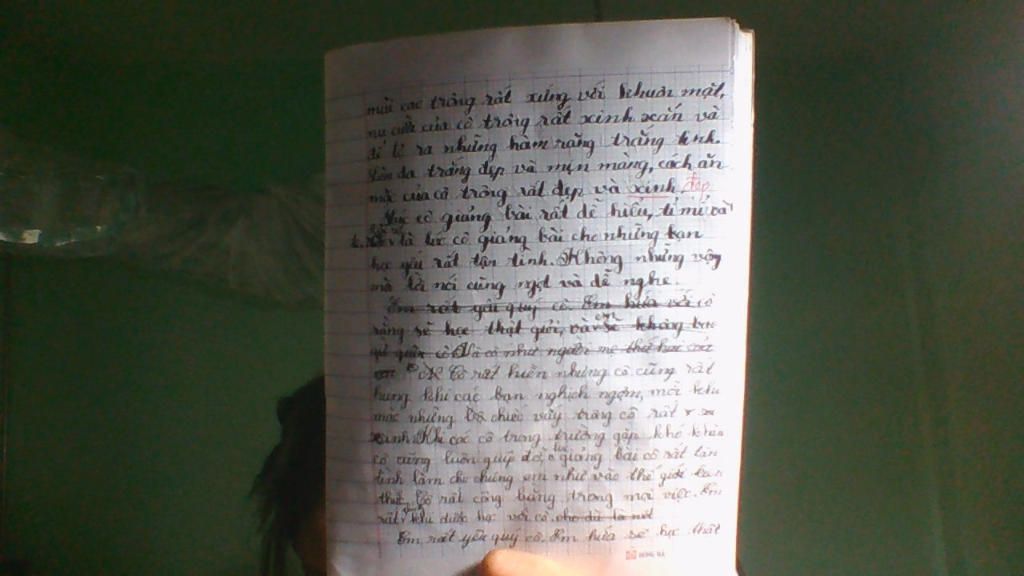 mũi cao trông rất xứng với khuôn mặt,
nụ cười của cô trông rất xinh xắn và
để lộ ra những hàm răng trắng tinh.
da trắng đẹp và mịn màng, cách ăn
mặc của cô trông rất đẹp và xinh đẹp
cô giảng bài rất dễ hiểu, tỉ mỉ và
là lúc cô giảng bài cho những bạn
học yếu rất tận tình. Không những vậy
mà nói cũng ngọt và dễ nghe.
Em rất yêu quý cô. Em hứa với cô
rằng sẽ học thật giỏi, và sẽ không bao
giờ quên cô. Và cô như người mẹ thứ hai của
em. Cô rất hiền nhưng cô cũng rất
hung khi các bạn nghịch ngợm, mỗi khi
mặc những bộ chiếc váy trông cô rất
xinh. Khi các cô trong trường gặp khó khăn
cô cũng luôn giúp đỡ, giảng bài cô rất tận
tình làm cho chúng em như vào thế giới
Cô rất công bằng trong mọi việc. Em
rất khi được học với cô. cho dù là
Em rất yêu quý cô. Em hứa sẽ học thật
HỒNG HÀ